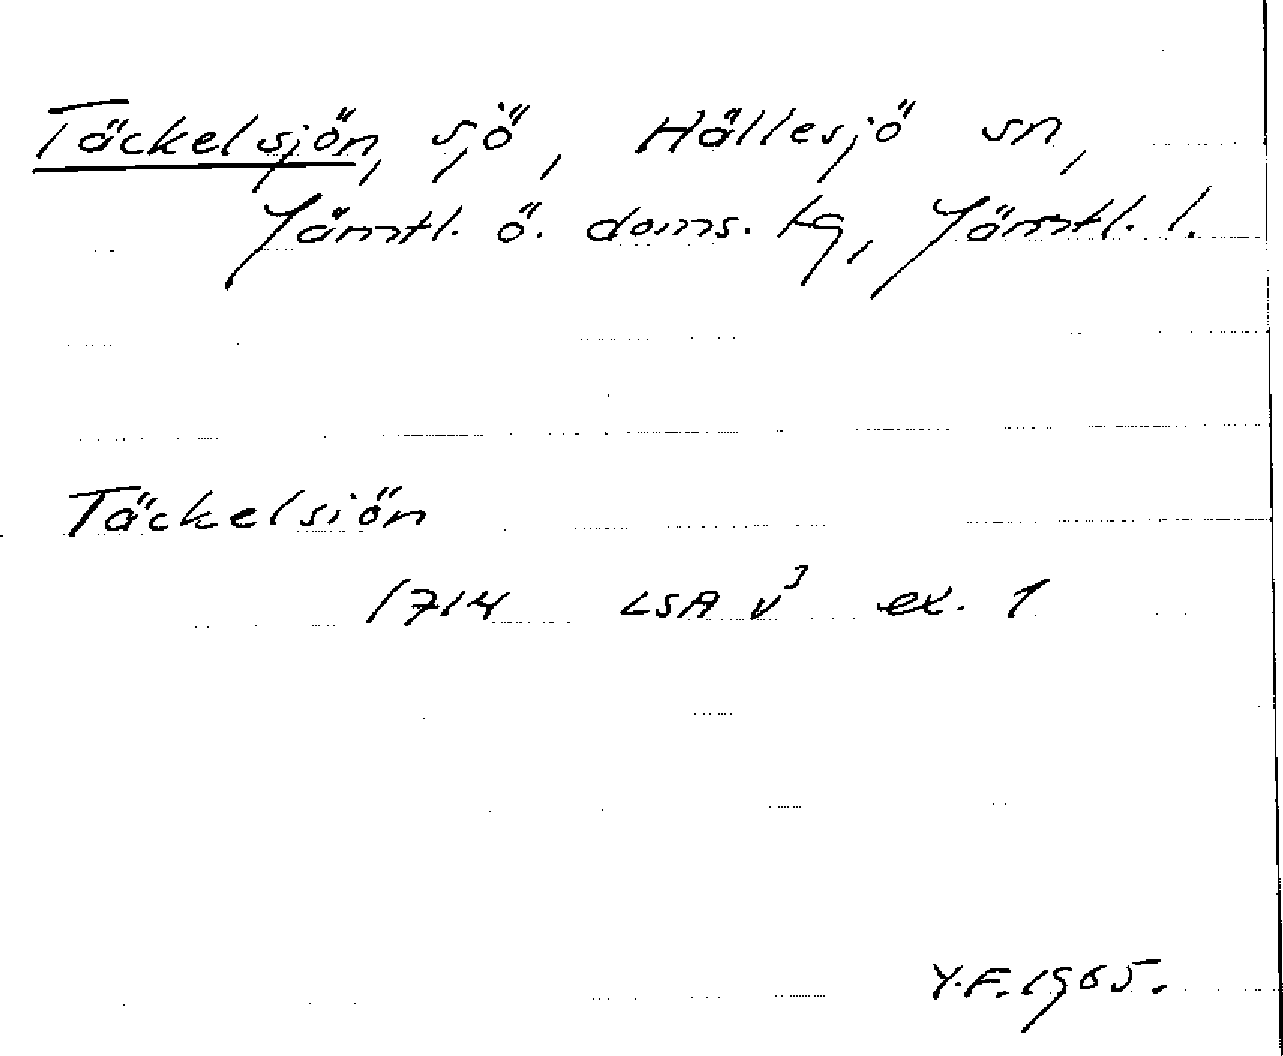 Täckelsjön, sjö, Hällesjö sn,
Jämtl. ö. doms. hg, Jämtl. l.
Täckelsiön
1714 LSA V³ ex. 1
Y.F. 1965.